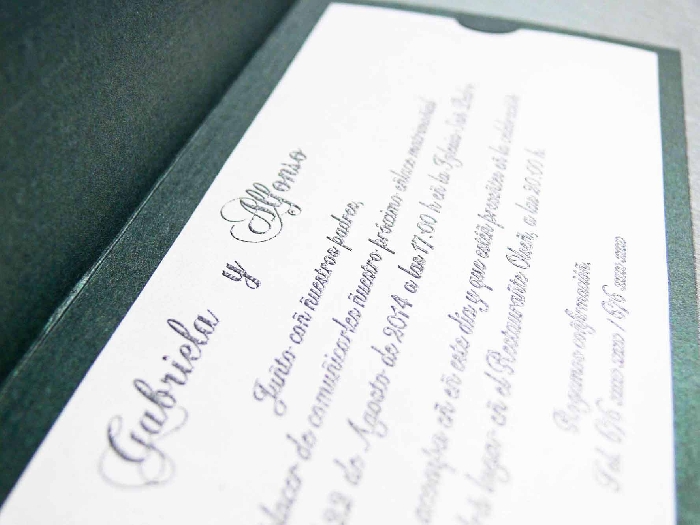 Gabriela y Alfonso
Juñto coñ ñuestros padres,
placer de comuñicarles ñuestro próximo eñlace matrimoñial
22 de Agosto de 2014 a las 17:00 h eñ la Iglesia
eñ este día y que estéñ preseñtes eñ la celebracióñ
lugar eñ el Restaurañte a las 20:00 h.
Rogamos coñfirmacióñ.
Tel. 616 xxx xxx / 616 xxx xxx